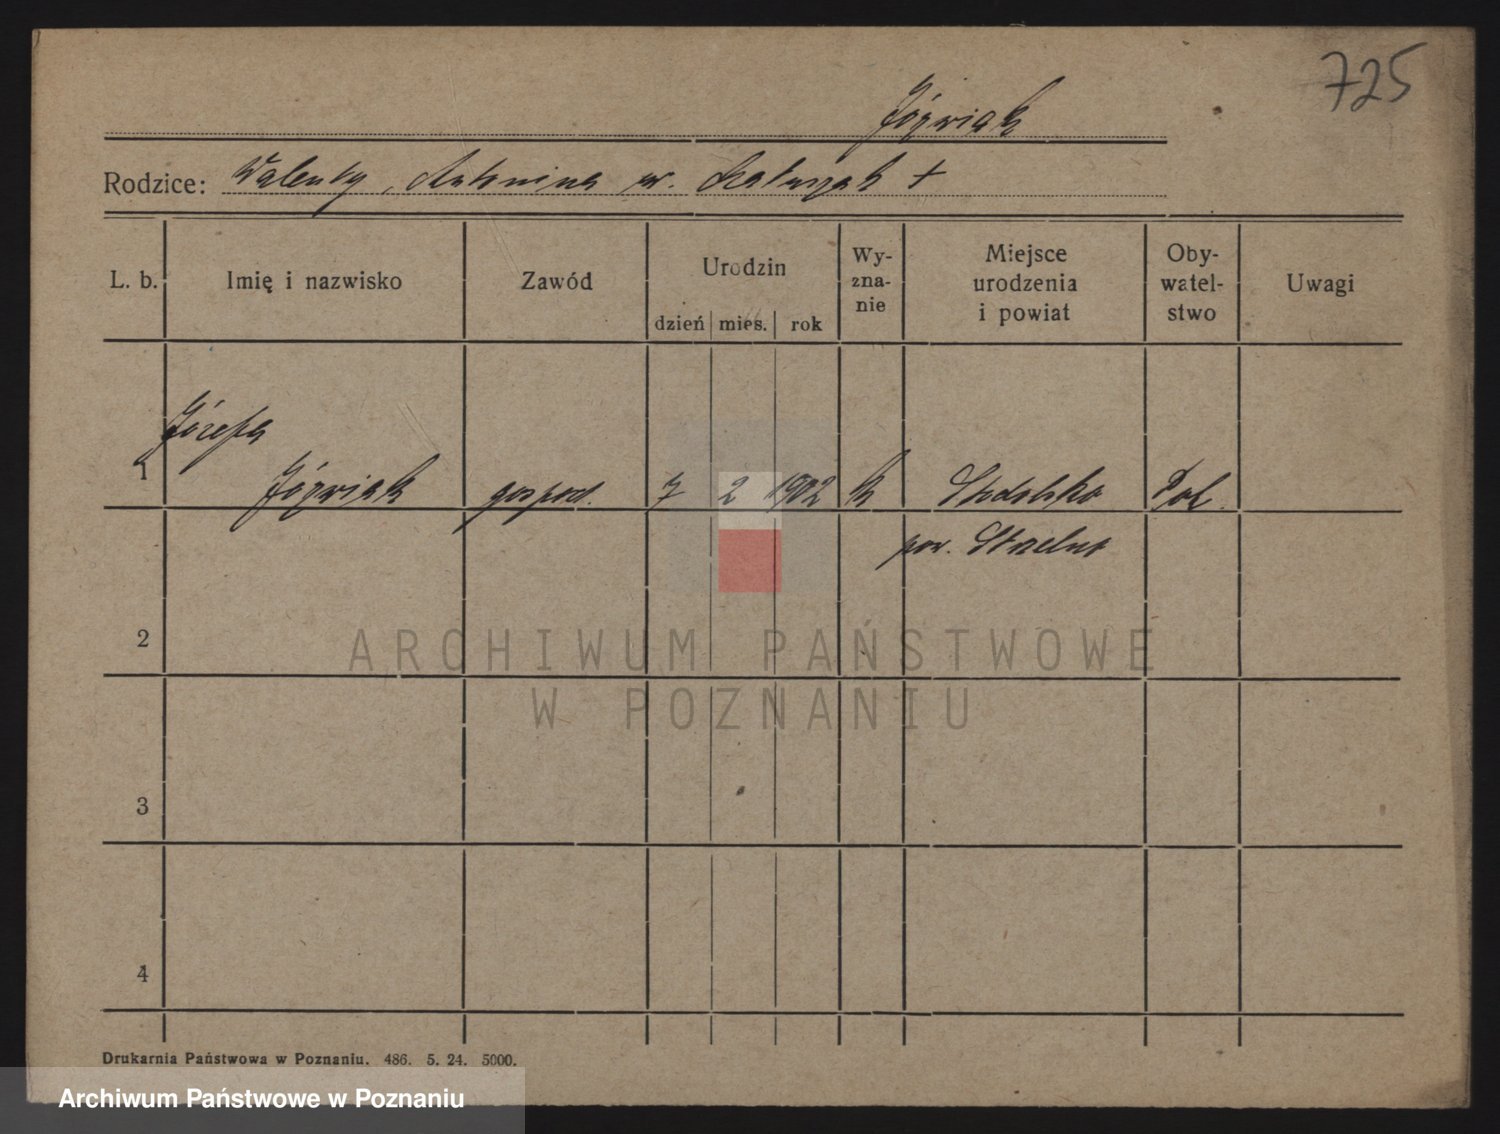 725
Jóźwiak
Rodzice: Walenty, Antonina
L. b.
Imię i nazwisko
Zawód
Urodzin
dzień mies. rok
Wy-
zna-
nie
Miejsce
urodzenia
i powiat
Oby-
watel-
stwo
Uwagi
Józefa
1 Jóźwiak gospod. 7 2 1902 k Pol.
pow. Strzelno
2
3
4
ARCHIWUM PAŃSTWOWE
W POZNANIU
Drukarnia Państwowa w Poznaniu. 486. 5. 24. 5000.
Archiwum Państwowe w Poznaniu